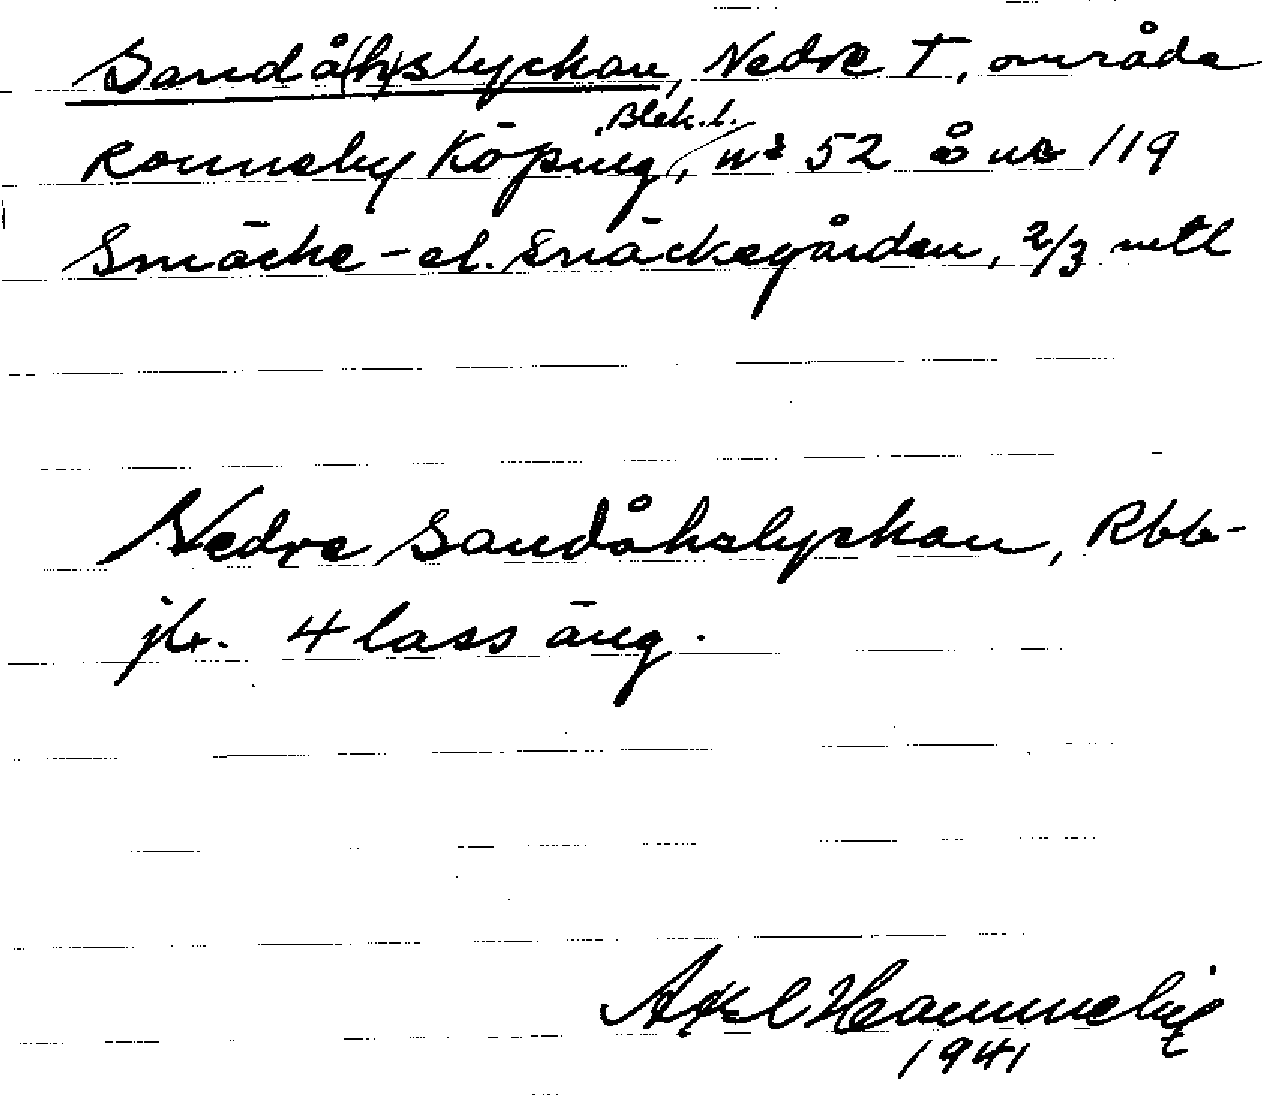 Sandå(h)slyckan, Nedre T, område
Ronneby Köping, Blek. l. nr 52 å nr 119
Snäcke- el. Snäckegården, 2/3 mtl
Nedre Sandåhslyckan, Rbb-
jb. 4 lass äng.
Axel Hammelig
1941